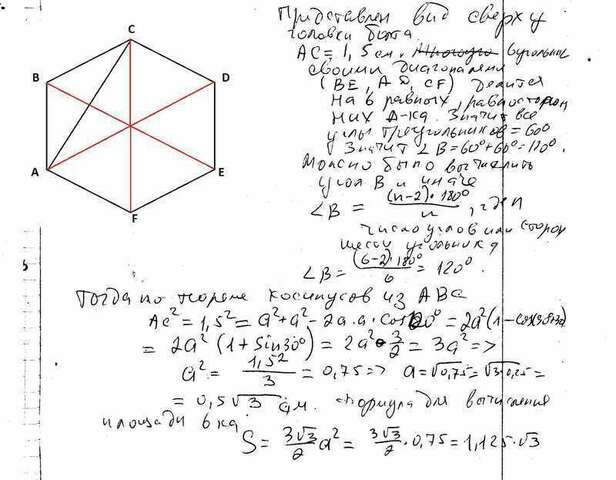 Представлен вид сверху
головки болта.
AC = 1,5 см. угольник
своими диагоналями
(BE, AD, CF) делится
на 6 равных, равносторон
них Δ-ка. Значит все
углы треугольников = 60°
Значит ∠B = 60° + 60° = 120°.
Можно было вычислить
угол B и иначе
∠B = (n-2)·180° / n, где n
число углов или сторон
шестиугольника
∠B = (6-2)·180° / 6 = 120°.
Тогда по теореме косинусов из ABC
AC² = 1,5² = a² + a² - 2a·a·cos120° = 2a²(1-cos(90+30)
= 2a²(1+sin30°) = 2a²·3/2 = 3a² =>
a² = 1,5² / 3 = 0,75 => a = √0,75 = √3·0,25 =
= 0,5√3 см. Формула для вычисления
площади 6 ка:
S = 3√3/2 a² = 3√3/2 · 0,75 = 1,125·√3
C
B
D
A
E
F